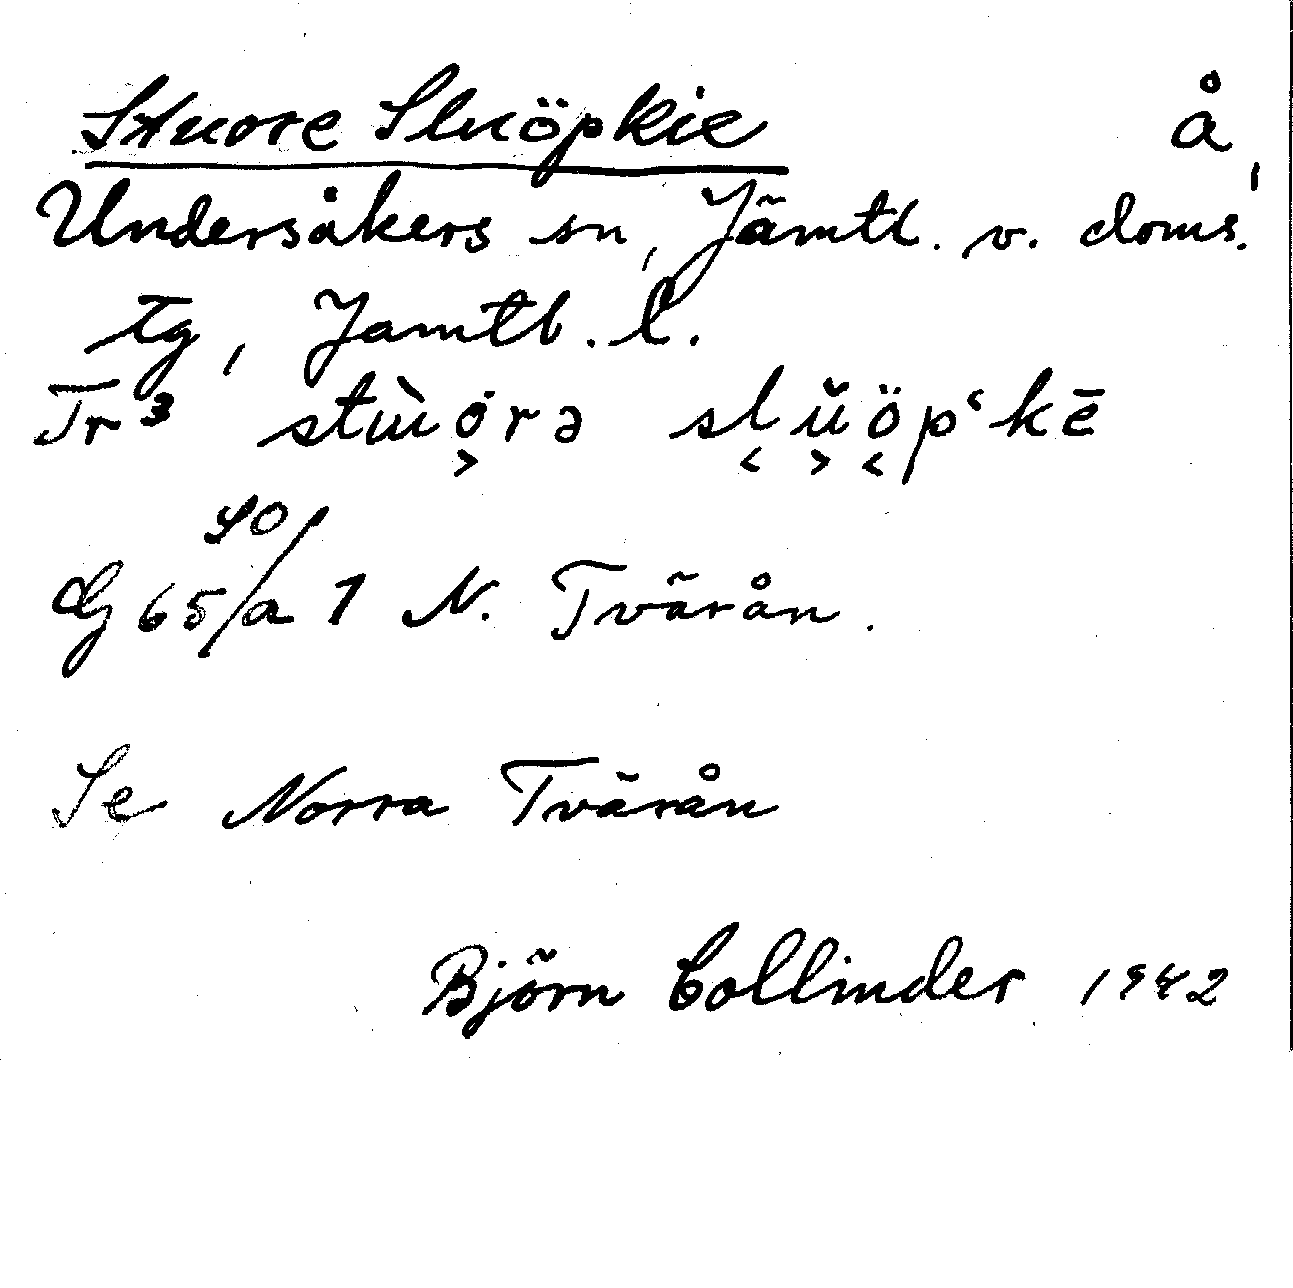 Stuore Sluöpkie å
Undersåkers sn, Jämtl. v. doms.
tg, Jämtl. l.
Tr³
G 65 SO/a 1 N. Tvärån.
Se Norra Tvärån
Björn Collinder 1942